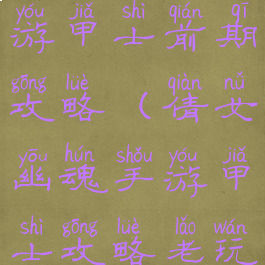 yóu jiǎ shì qián qī
游甲士前期
gōng lüè qiàn nǚ
攻略(倩女
yōu hún shǒu yóu jiǎ
幽魂手游甲
shì gōng lüè lǎo wán
士攻略老玩